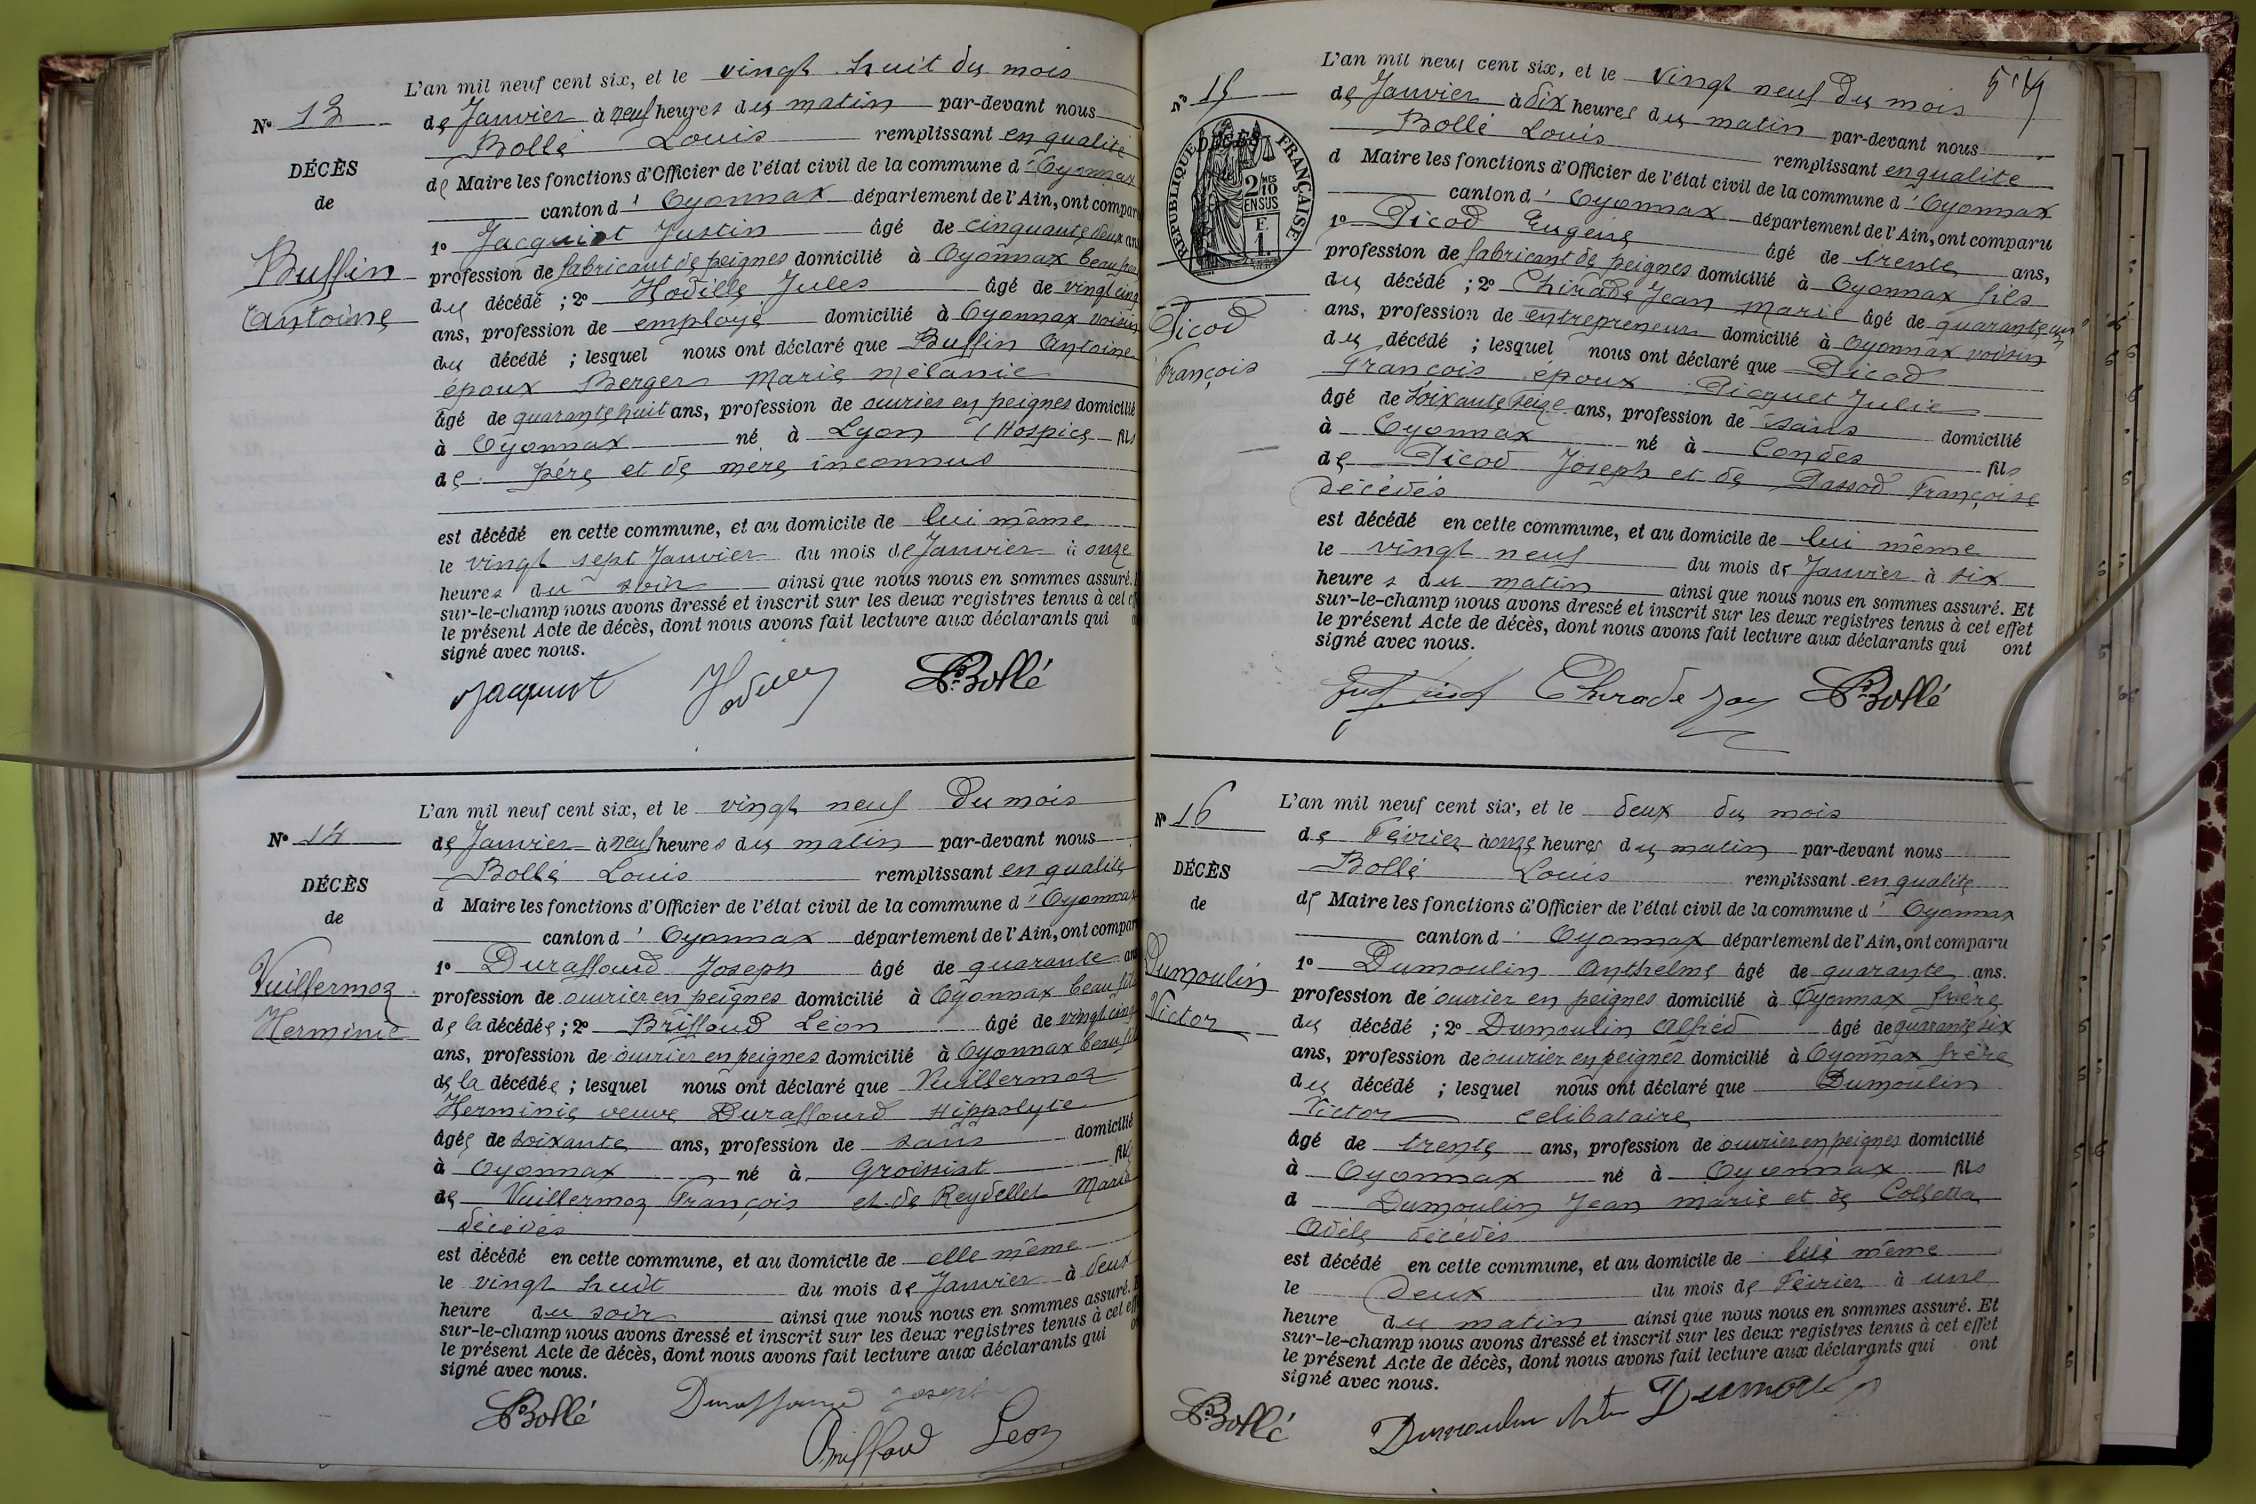 L'an mil neuf cent six, et le vingt huit du mois
N° 13
de Janvier à neuf heures du matin par-devant nous
Bollé Louis remplissant en qualité
DÉCÈS
de Maire les fonctions d'Officier de l'état civil de la commune d'Oyonnax
de
canton d'Oyonnax département de l'Ain, ont compar
1° Jacquiot Justin âgé de cinquante deux an
Buffin
profession de fabricant de peignes domicilié à Oyonnax beau
du décédé ; 2° Hodille Jules âgé de vingt cinq
Antoine
ans, profession de employé domicilié à Oyonnax voisin
du décédé ; lesquel nous ont déclaré que Buffin Antoine
époux Berger Marie Mélanie
âgé de quarante huit ans, profession de ouvrier en peignes domicilié
à Oyonnax né à Lyon (Hospice fils
de père et de mère inconnus
est décédé en cette commune, et au domicile de lui même
le vingt sept Janvier du mois de Janvier à onze
heures du soir ainsi que nous nous en sommes assuré.
sur-le-champ nous avons dressé et inscrit sur les deux registres tenus à cet
le présent Acte de décès, dont nous avons fait lecture aux déclarants qui
signé avec nous.
Jacquiot Hodille Bollé
L'an mil neuf cent six, et le vingt neuf du mois
N° 14
de Janvier à neuf heures du matin par-devant nous
Bollé Louis remplissant en qualité
DÉCÈS
d Maire les fonctions d'Officier de l'état civil de la commune d'Oyonnax
de
canton d'Oyonnax département de l'Ain, ont compar
1° Duraffourd Joseph âgé de quarante ans
Vuillermoz
profession de ouvrier en peignes domicilié à Oyonnax beau fils
Herminie
de la décédée ; 2° Briffoud Léon âgé de vingt cinq
ans, profession de ouvrier en peignes domicilié à Oyonnax beau fils
de la décédée ; lesquel nous ont déclaré que Vuillermoz
Herminie veuve Duraffourd Hippolyte
âgée de soixante ans, profession de sans domicilié
à Oyonnax né à Groissiat fil
de Vuillermoz François et de Reydellet Marie
décédés
est décédé en cette commune, et au domicile de elle même
le vingt huit du mois de Janvier à deux
heure du soir ainsi que nous nous en sommes assuré.
sur-le-champ nous avons dressé et inscrit sur les deux registres tenus à cet
le présent Acte de décès, dont nous avons fait lecture aux déclarants qui
signé avec nous.
Bollé Duraffourd Joseph
Briffoud Léon
L'an mil neuf cent six, et le vingt neuf du mois
N° 15
de Janvier à dix heures du matin par-devant nous
Bollé Louis remplissant en qualité
DÉCÈS
RÉPUBLIQUE FRANÇAISE
2 10
EN SUS
d Maire les fonctions d'Officier de l'état civil de la commune d'Oyonnax
canton d'Oyonnax département de l'Ain, ont comparu
1° Picod Eugène âgé de trente ans,
profession de fabricant de peignes domicilié à Oyonnax fils
du décédé ; 2° Chirade Jean Marie âgé de quarante
Picod
ans, profession de entrepreneur domicilié à Oyonnax voisin
du décédé ; lesquel nous ont déclaré que Picod
François
François époux Picquet Julie
âgé de soixante seize ans, profession de sans domicilié
à Oyonnax né à Condes fils
de Picod Joseph et de Passod Françoise
décédés
est décédé en cette commune, et au domicile de lui même
le vingt neuf du mois de Janvier à six
heures du matin ainsi que nous nous en sommes assuré. Et
sur-le-champ nous avons dressé et inscrit sur les deux registres tenus à cet effet
le présent Acte de décès, dont nous avons fait lecture aux déclarants qui ont
signé avec nous.
Chirade Bollé
L'an mil neuf cent six, et le deux du mois
N° 16
de Février à onze heures du matin par-devant nous
Bollé Louis remplissant en qualité
DÉCÈS
de Maire les fonctions d'Officier de l'état civil de la commune d'Oyonnax
de
canton d'Oyonnax département de l'Ain, ont comparu
1° Dumoulin Anthelme âgé de quarante ans.
Dumoulin
profession de ouvrier en peignes domicilié à Oyonnax frère
Victor
du décédé ; 2° Dumoulin Alfred âgé de quarante six
ans, profession de ouvrier en peignes domicilié à Oyonnax frère
du décédé ; lesquel nous ont déclaré que Dumoulin
Victor celibataire
âgé de trente ans, profession de ouvrier en peignes domicilié
à Oyonnax né à Oyonnax fils
d Dumoulin Jean Marie et de Colletta
Adèle décédés
est décédé en cette commune, et au domicile de lui même
le deux du mois de Février à une
heure du matin ainsi que nous nous en sommes assuré. Et
sur-le-champ nous avons dressé et inscrit sur les deux registres tenus à cet effet
le présent Acte de décès, dont nous avons fait lecture aux déclarants qui ont
signé avec nous.
Bollé Dumoulin Dumoulin